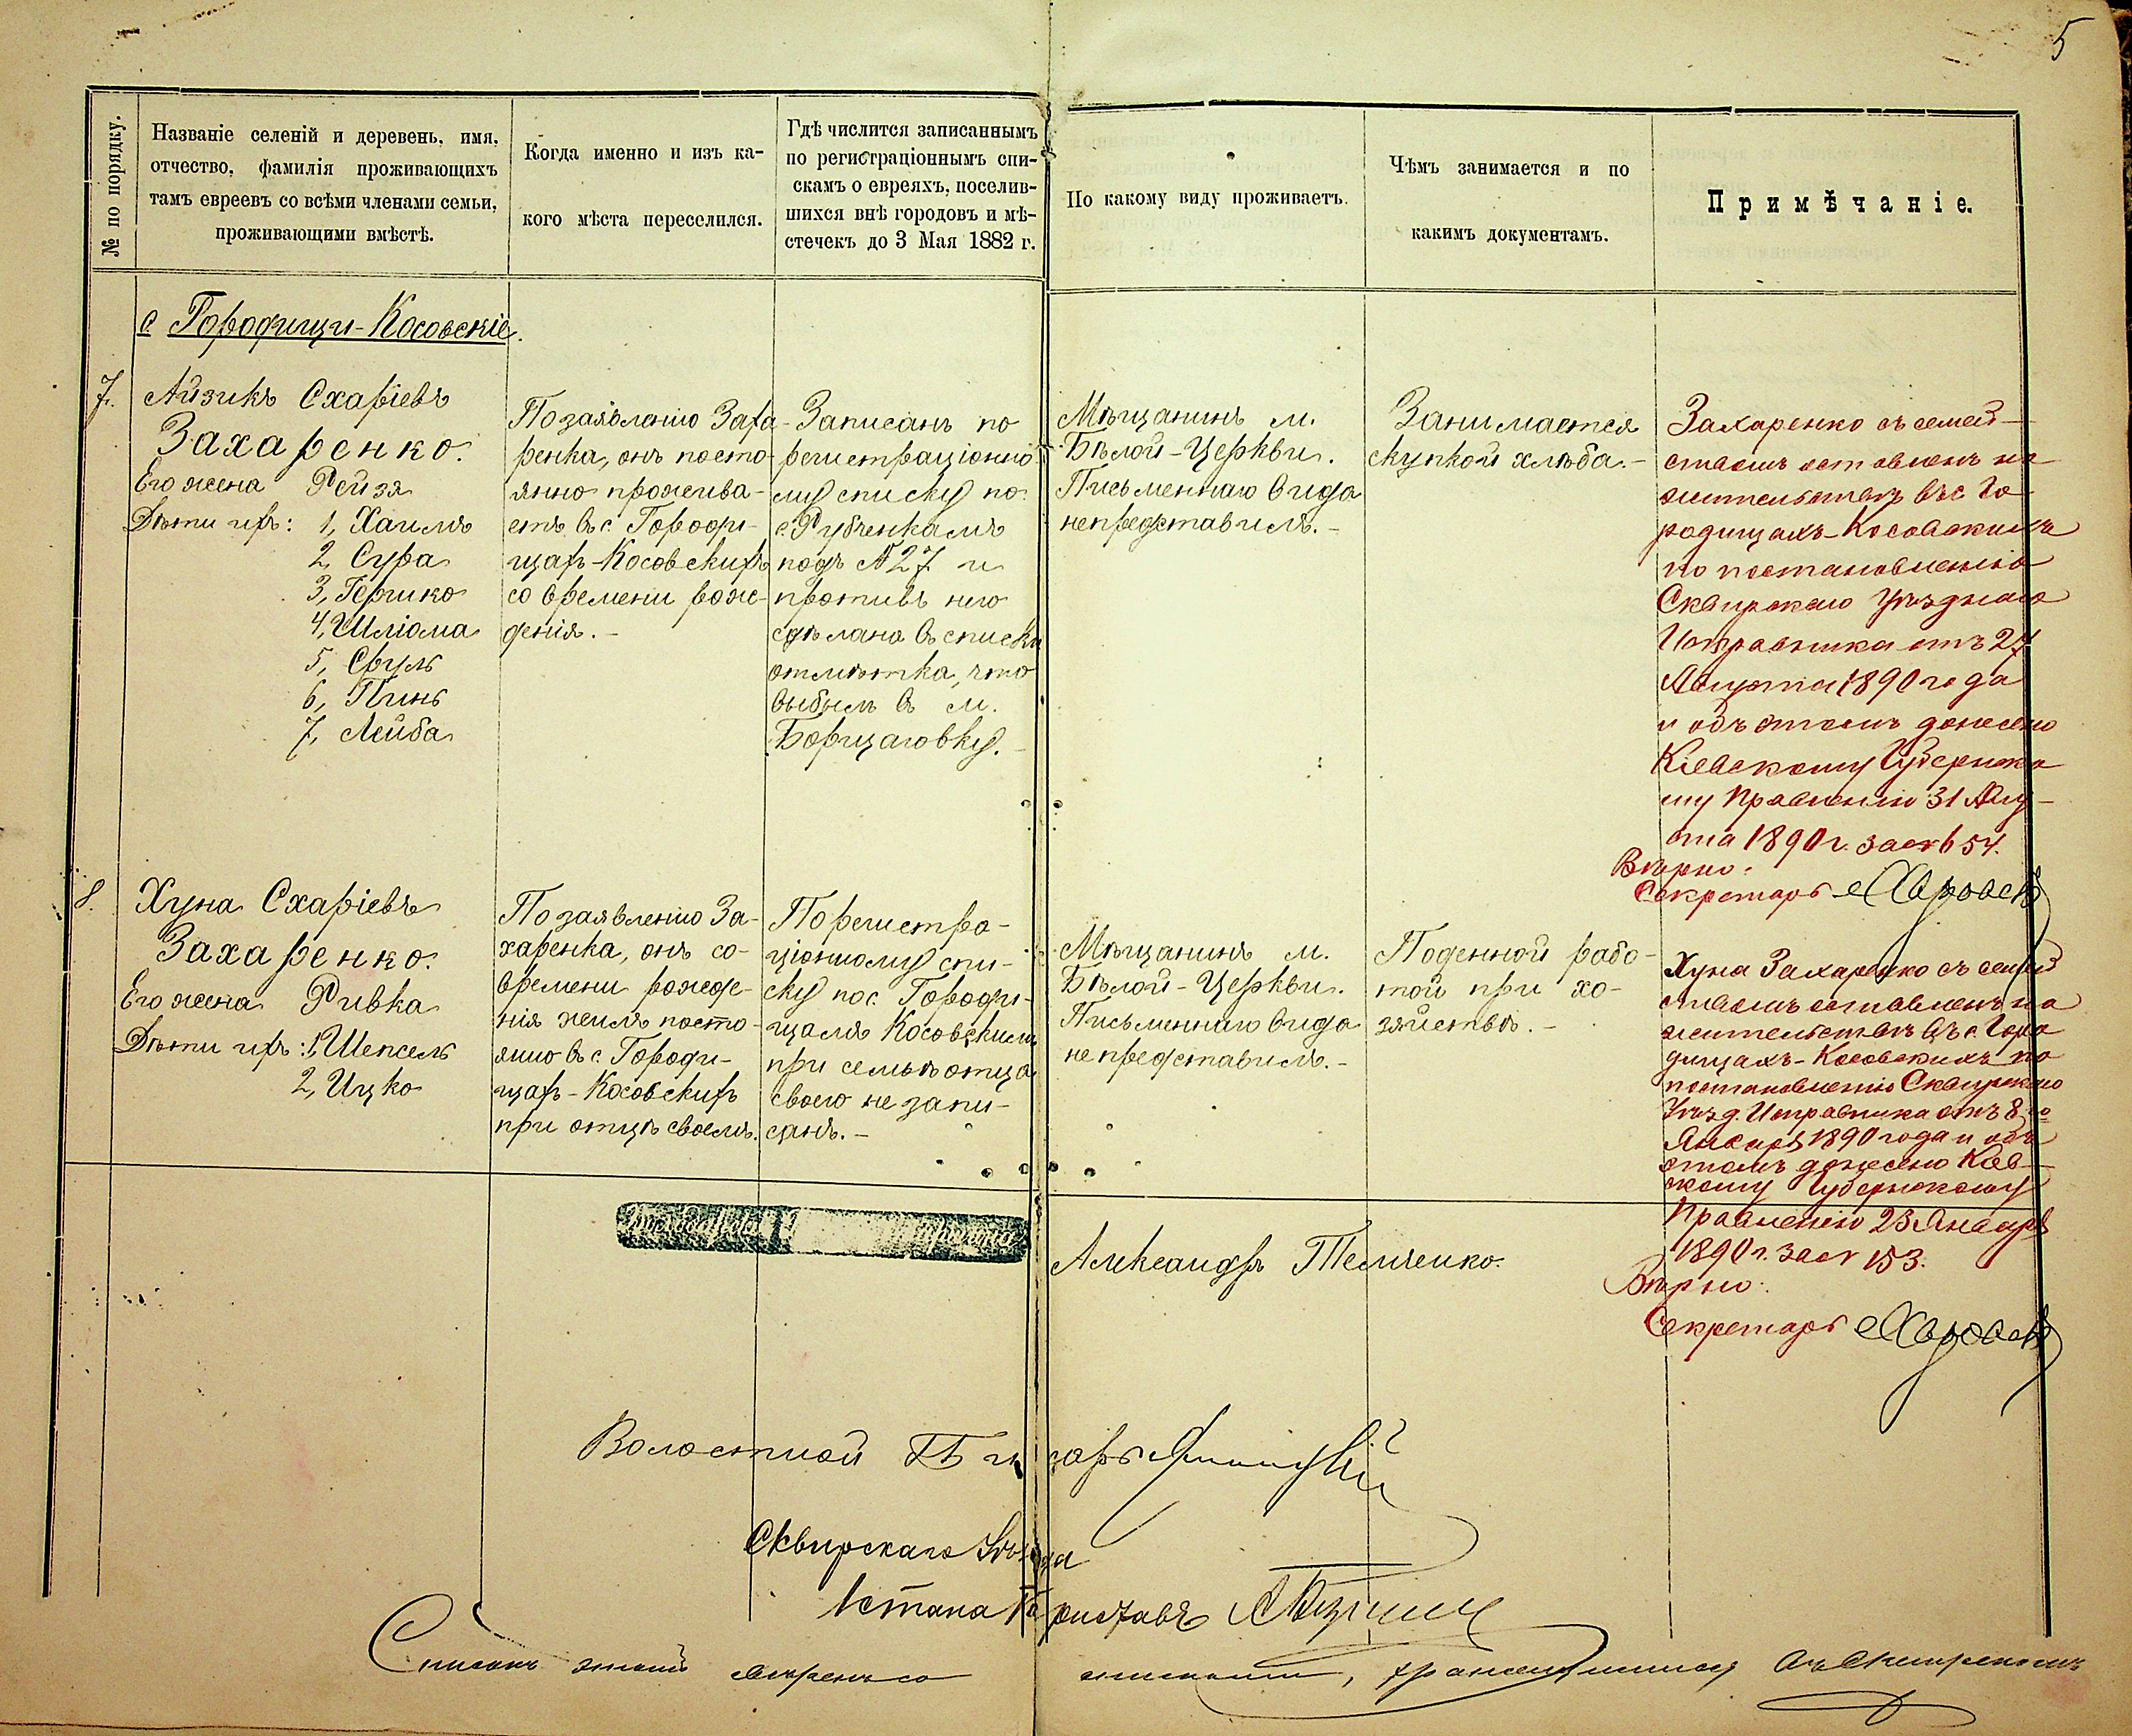 5
№ по порядку.
Названіе селеній и деревень, имя,
отчество, фамилія проживающихъ
тамъ евреевъ со всѣми членами семьи,
проживающими вмѣстѣ.
Когда именно и изъ ка-
кого мѣста переселился.
Гдѣ числится записаннымъ
по регистраціоннымъ спи-
скамъ о евреяхъ, поселив-
шихся внѣ городовъ и мѣ-
стечекъ до 3 Мая 1882 г.
По какому виду проживаетъ.
Чѣмъ занимается и по
какимъ документамъ.
Примѣчаніе.
с Городищи-Косовскіе.
7.
Айзикъ Схаріевъ
Захаренко.
Его жена Рейзя
Дѣти ихъ: 1, Хаимъ
2, Сура
3, Гершко
4, Шліома
5, Сруль
6, Пинь
7, Лейба
По заявленію Заха-
ренка, онъ посто-
янно прожива-
етъ въ с. Городи-
щахъ-Косовскихъ
со времени рож-
денія.-
Записанъ по
регистраціонно-
му списку по
с. Рубченкамъ
подъ № 27 и
противъ него
сдѣлана въ спискѣ
отмѣтка, что
выбылъ въ м.
Борщаговку.-
Мѣщанинъ м.
Бѣлой-Церкви.
Письменнаго вида
не представилъ.-
Занимается
скупкой хлѣба.-
Захаренко съ семей-
ствомъ оставленъ на
жительствѣ въ с Го-
родищахъ-Косовскихъ
по постановленію
Сквирскаго Уѣзднаго
Исправника отъ 27
Августа 1890 года
и объ этомъ донесено
Кіевскому Губернско
му Правленію 31 Авгу-
ста 1890 г. за № 654.
Вѣрно:
Секретарь
8.
Хуна Схаріевъ
Захаренко.
Его жена Ривка
Дѣти ихъ: 1, Шепсель
2, Ицко
По заявленію За-
харенка, онъ со
времени рожде-
нія жилъ посто-
янно въ с. Городи-
щахъ-Косовскихъ
при отцѣ своемъ.
По регистра-
ціонному спи-
ску по с. Городи-
щамъ Косовскимъ
при семьѣ отца
своего не запи-
санъ.-
Мѣщанинъ м.
Бѣлой-Церкви.
Письменнаго вида
не представилъ.-
Поденной рабо-
той при хо-
зяйствѣ.-
Хуна Захаренко съ семей
ствомъ оставленъ на
жительствѣ въ с. Горо
дищахъ-Косовскихъ по
постановленію Сквирскаго
Уѣзд. Исправника отъ 8 го
Января 1890 года и объ
этомъ донесено Кіев-
скому Губернскому
Правленію 23 Января
1890 г. за № 153.
Вѣрно:
Секретарь
Александръ Темченко.
Волостной Писарь
Сквирскаго Уѣзда
1 стана Приставъ
Списокъ этотъ вѣренъ со
спискомъ, хранящимся въ Сквирскомъ